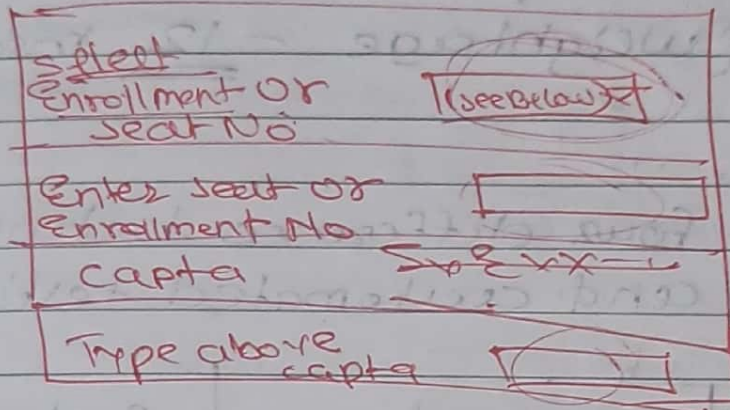 Select
Enrollment Or (see Below)
Seat No
Enter seat or
Enrollment No
Capta
Type above
capta